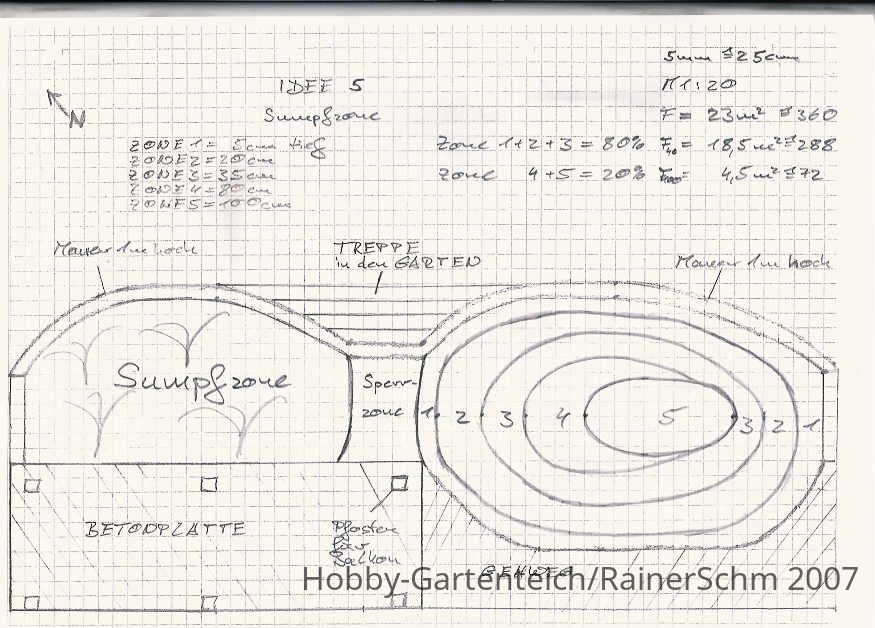 5mm ≙ 25cm
IDEE 5
M 1:20
N
Sumpfzone
F = 23m² ≙ 360
ZONE 1 = 5cm tief
Zone 1+2+3 = 80% F₄₀ = 18,5m² ≙ 288
ZONE 2 = 20cm
ZONE 3 = 35cm
Zone 4+5 = 20% F₁₀₀ = 4,5m² ≙ 72
ZONE 4 = 80cm
ZONE 5 = 100cm
Mauer 1m hoch
TREPPE
in den GARTEN
Mauer 1m hoch
Sumpfzone
Sperr-
zone
1 2 3 4 5 3 2 1
BETONPLATTE
Pfosten
für
Balkon
GEHWEG
Hobby-Gartenteich/RainerSchm 2007